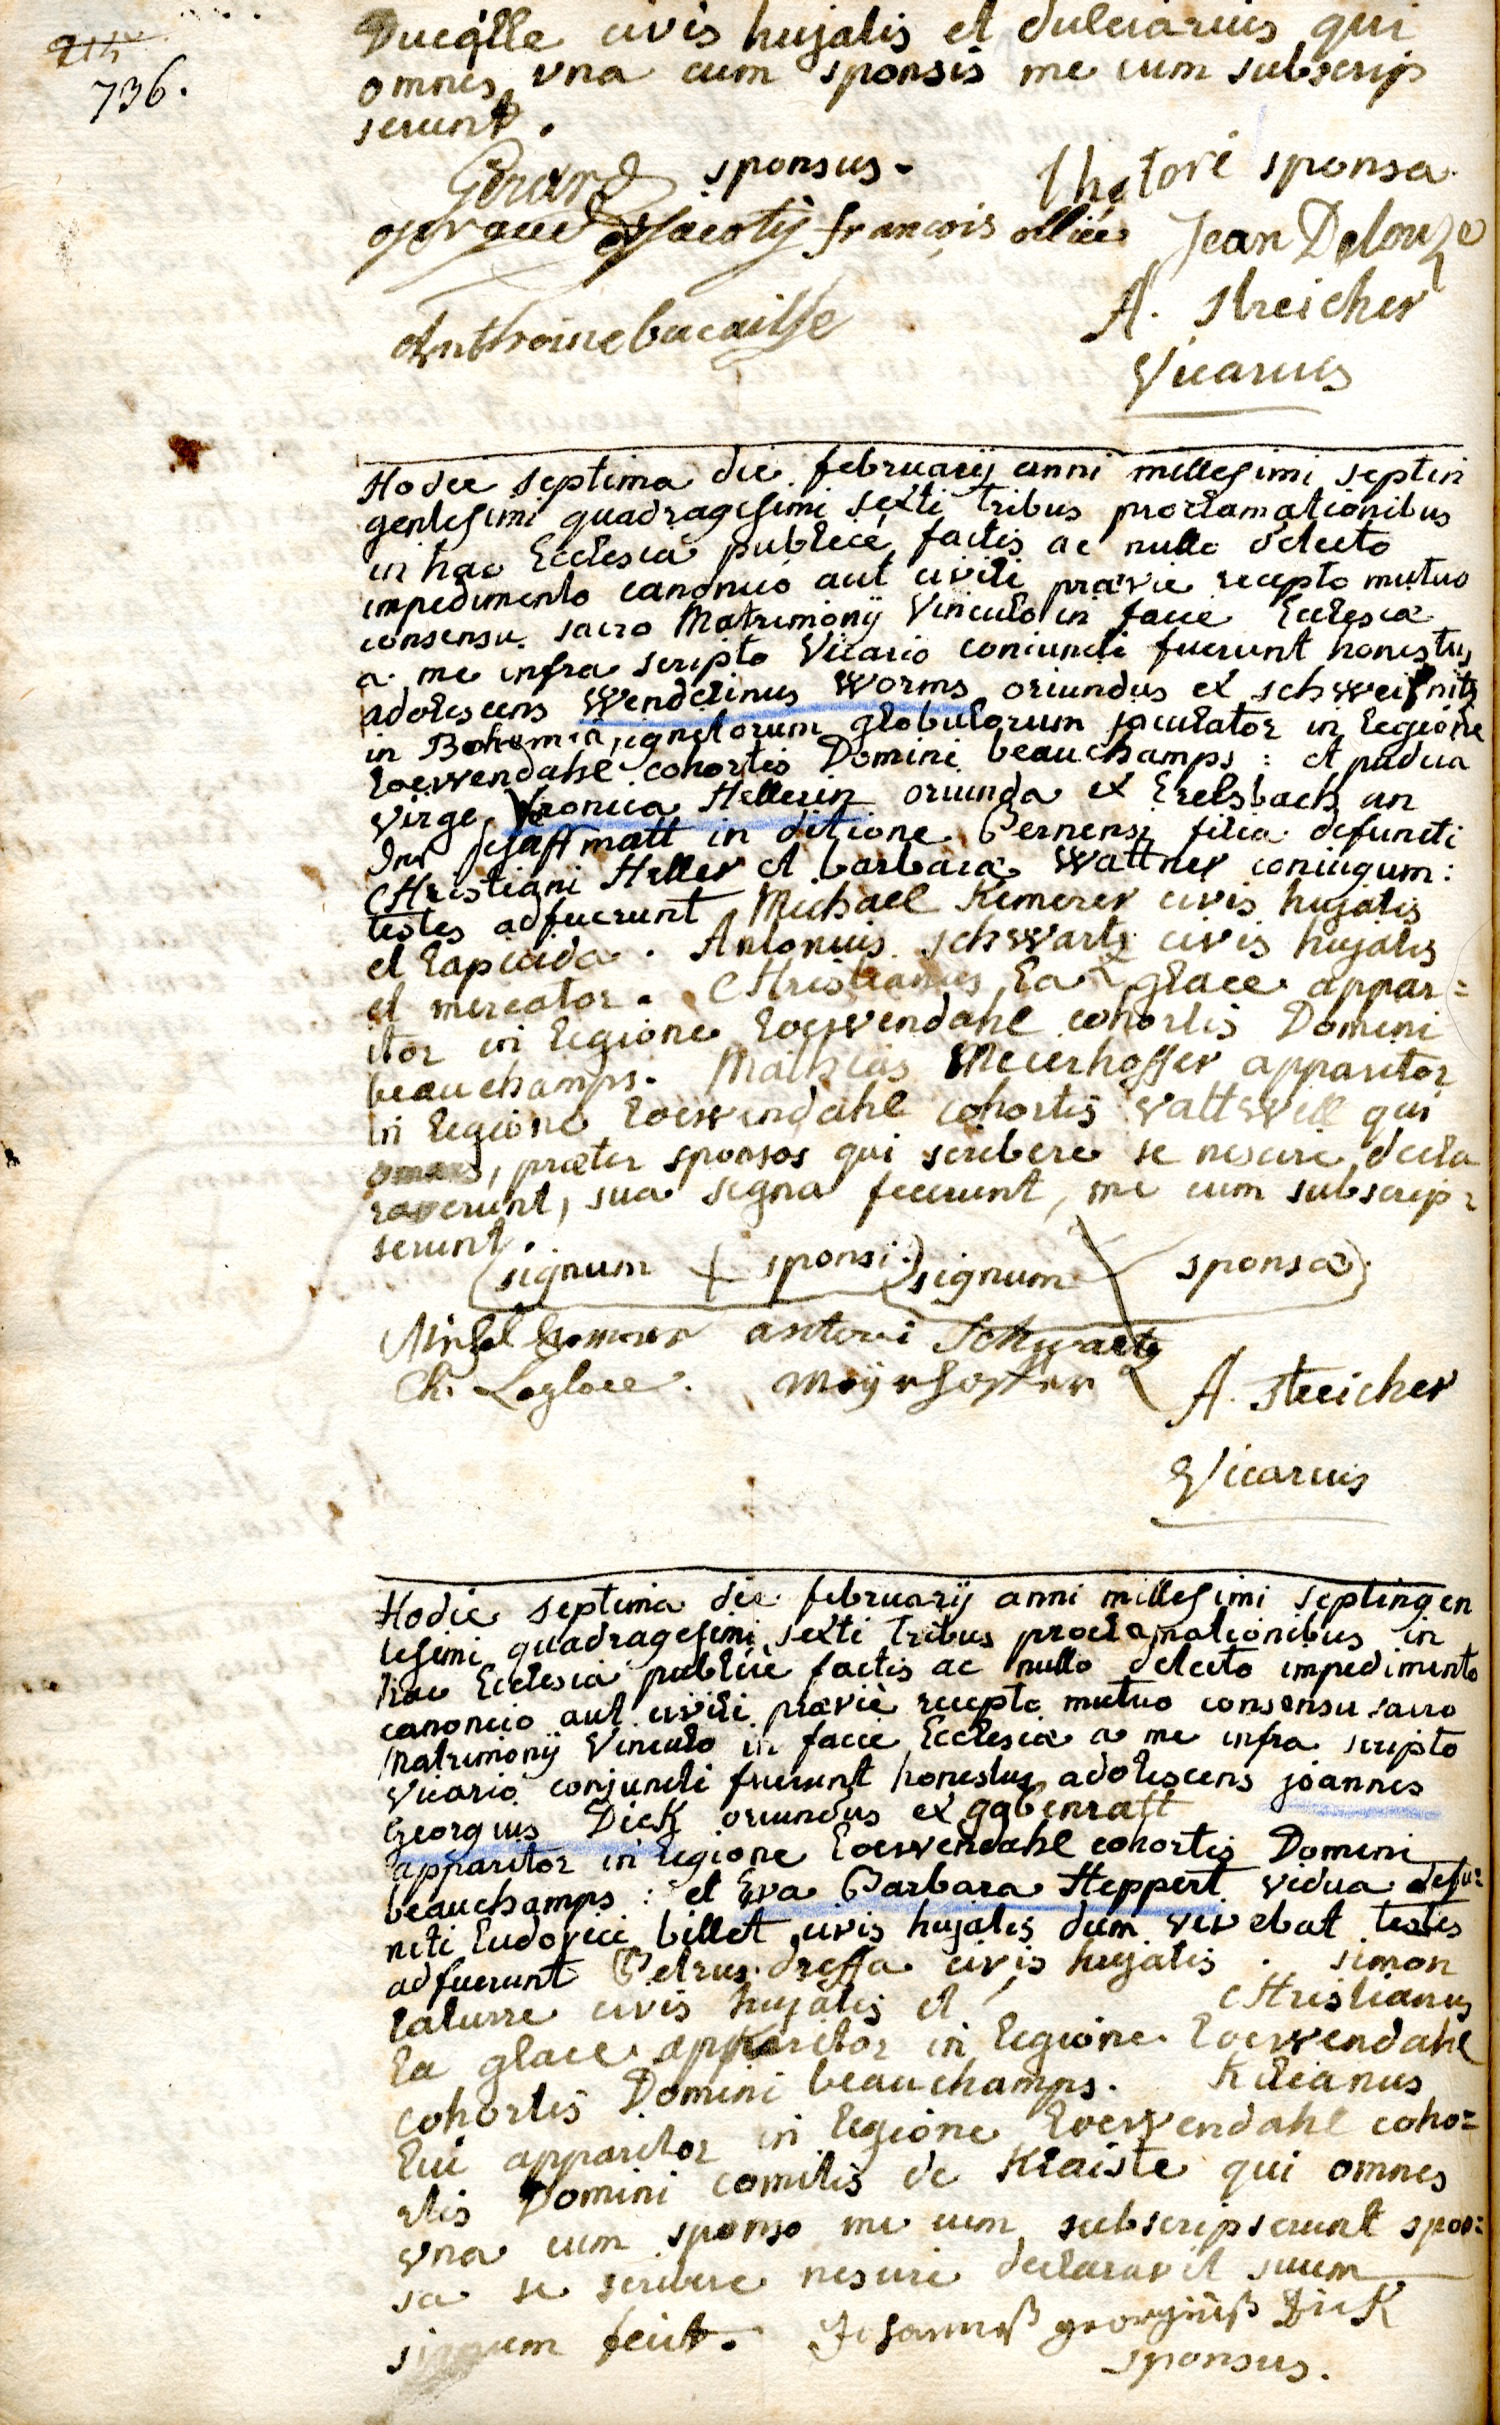 736.
Ducaille civis hujatis et dulciarius qui
omnes una cum sponsis me cum subscrip
serunt.
Gerard sponsus. sponsa.
françois ollier Jean Delouze
Anthoine bucaille A. Streicher
Vicarius
Hodie septima die februarij anni millesimi septin
gentesimi quadragesimi sexti tribus proclamationibus
in hac Ecclesia publicè factis ac nullo detecto
impedimento canonico aut civili prævie recepto mutuo
consensu sacro Matrimonij Vinculo in facie Ecclesiæ
a me infra scripto Vicario coniuncti fuerunt honestus
adolescens Wendelinus Worms oriundus ex schweisnitz
in Bohemia, ignitorum globulorum jaculator in legione
Loewendahl cohortis Domini beauchamps: et pudica
virgo Vronica Hellerin oriunda ex Erelsbach an
der schaffmatt in ditione Bernensi filia defuncti
CHristiani Heller et barbaræ Wattner coniugum:
testes adfuerunt Michael Kemerer civis hujatis
et lapicida. Antonius schwartz civis hujatis
et mercator. CHristianus La glace appar=
itor in legione Loewendahl cohortis Domini
beauchamps. Mathias Meierhoffer apparitor
in legione Loewendahl cohortis Vattwill qui
omnes, præter sponsos qui scribere se nescire decla
raverunt, sua signa fecerunt, me cum subscrip=
serunt.
signum + sponsi. signum X sponsæ.
Michel antoni Schwartz
Ch. Laglace. Mayrhoffer A. Streicher
Vicarius
Hodie septima die februarij anni millesimi septingen
tesimi quadragesimi sexti tribus proclamationibus in
hac Ecclesia publicè factis ac nullo detecto impedimento
canonico aut civili præviè recepto mutuo consensu sacro
Matrimonij Vinculo in facie Ecclesiæ a me infra scripto
Vicario conjuncti fuerunt honestus adolescens joannes
Georgius Dick oriundus ex gabenratt
apparitor in legione Loewendahl cohortis Domini
beauchamps: et Eva Barbara Heppert vidua defu=
ncti Ludovici billet civis hujatis dum vivebat testes
adfuerunt Petrus dreffa civis hujatis. simon
laturre civis hujatis et CHristianus
La glace apparitor in legione Loewendahl
cohortis Domini beauchamps. Kilianus
Lui apparitor in legione Loewendahl coho=
rtis Domini comitis de Klaiste qui omnes
vna cum sponso me cum subscripserunt spon=
sa se scribere nescire declaravit suum
signum fecit. Johanneß georgiuß Dick
sponsus.